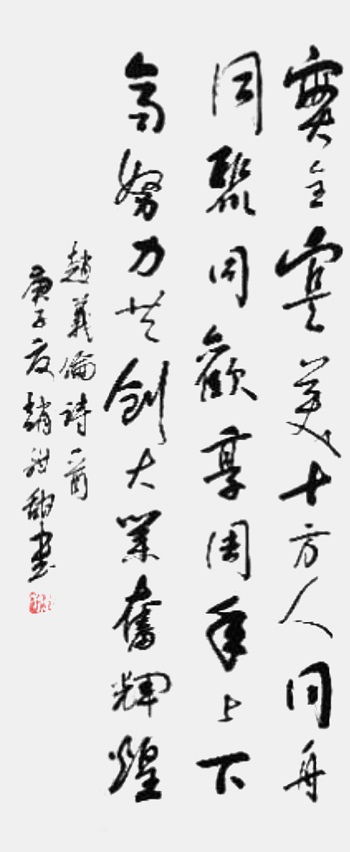 主美十方人同舟
同聚同歡享周年上下
齊努力共創大業奮輝煌
趙義倫詩一首
庚子夏趙甜甜書